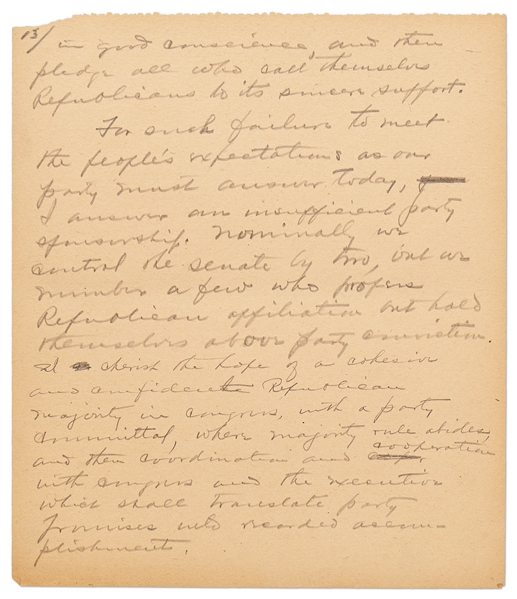 13/
in good conscience, and then
pledge all who call themselves
Republicans to its sincere support.
For such failure to meet
the people's expectations as our
party must answer today,
I answer an insufficient party
sponsorship. Nominally we
control the senate by two, but we
number a few who profess
Republican affiliation but hold
themselves above party conviction.
I cherish the hope of a cohesive
and confident Republican
majority in congress, with a party
committal, where majority rule abides,
and then coordination and cooperation
with congress and the executive
which shall translate party
promises into recorded accom-
plishment.